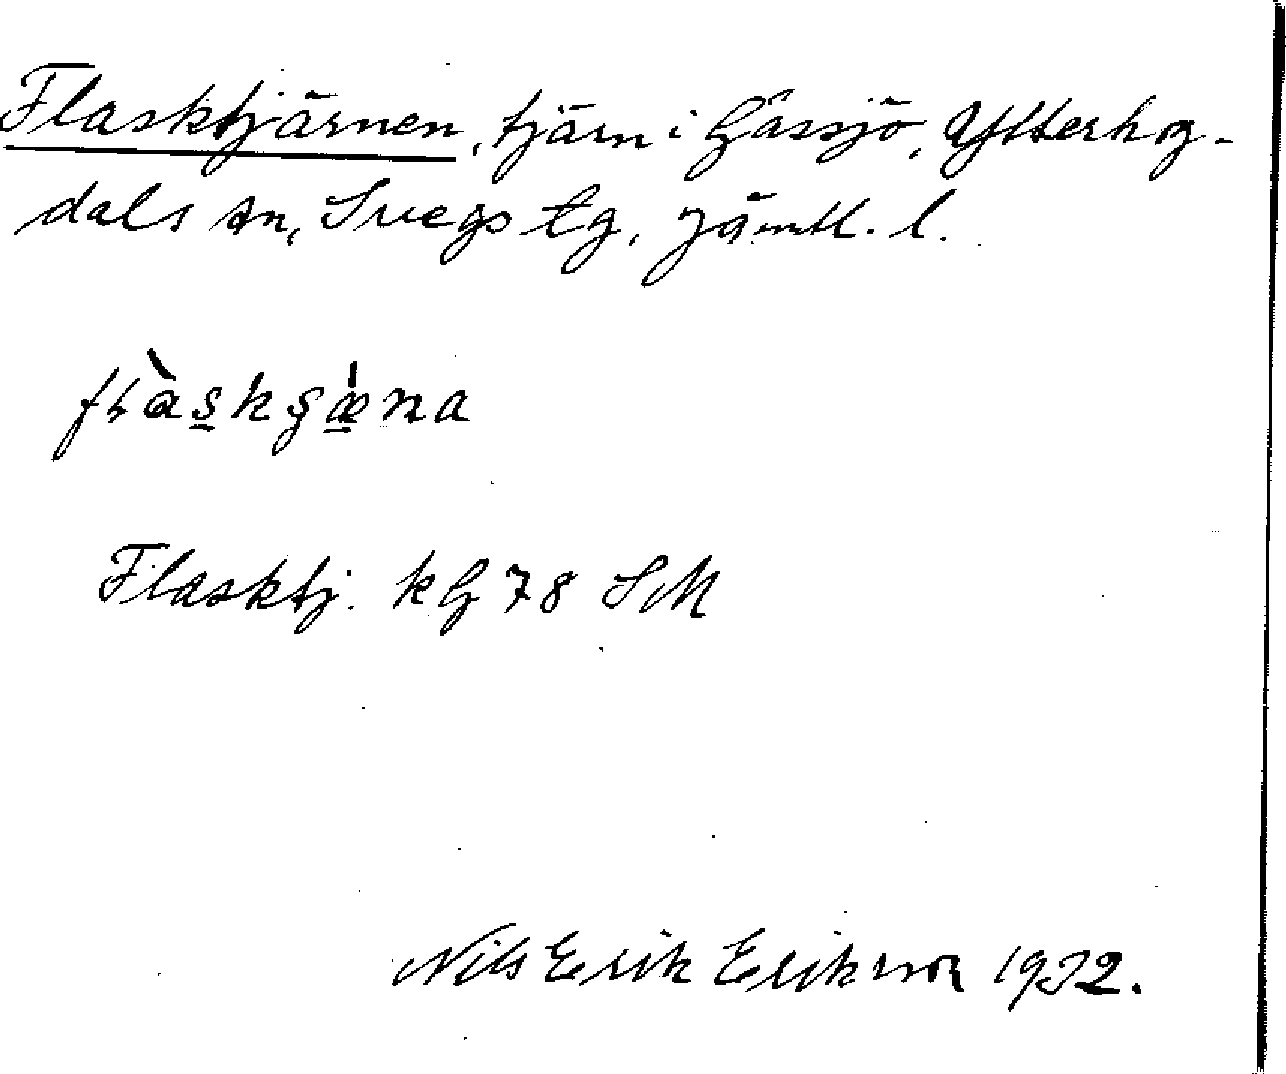 Flasktjärnen, tjärn i Gåssjö, Ytterhog-
dals sn, Svegs tg, Jämtl. l.
Flasktj. kG 78 SM
Nils Erik Erikson 1932.